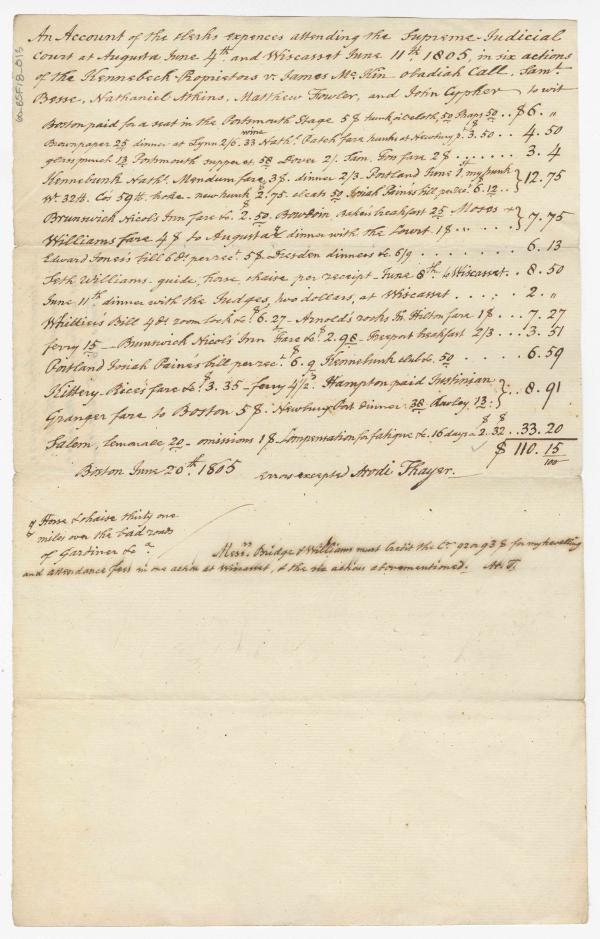 An Account of the clerks expences attending the Supreme Judicial
Court at Augusta June 4th. and Wiscasset June 11th. 1805, in six actions
of the Kennebeck Proprietors v. James McKin obadiah Call, Saml.
Besse, Nathaniel Atkins, Matthew Fowler, and John Cypher to wit
Boston paid for a seat in the Portsmouth Stage 5$ trunk oilcloth, 50 Straps 50 .. $6. „
Brown paper 25 dinner at Lynn 2/6. 33 wine Nathl. Patch fare, trunks at Newbury pt. $3.50 .. 4.50
gern punch 13 Portsmouth supper et. 58 Dover 2/. Tim. Fox fare 2$ ....... 3.4
Kennebunk Nathl. Mendum fare 3$. dinner 2/3 Portland June 1. my trunk
Wt. 32 lb. Cos 59th. broke - new trunk $2.75. cleats 50 Josiah Paine's bill per rect. $6.12 . } 12.75
Brunswick Nicols Inn fare &c. $2.50. Bowdoin Bakers breakfast 25 Moses
Williams fare 4$ to Augusta & dinner with the Court 1$ ... } 7.75
Edward Jones's bill 6 ds. per rect. 5$ Dresden dinners &c 6/9 ...... 6.13
Seth Williams guide, horse chaise per receipt June 8th. to Wiscasset .. 8.50
June 11th. dinner with the Judges, two dollars, at Wiscasset ..... 2. „
Whittier's Bill 4 ds. room lock &c $6.27 - Arnold's rocks Jn. Hilton fare 1$ ... 7.27
ferry 15 — Brunswick Nicols Inn fare &c. $2.98 - Freeport breakfast 2/3 ... 3.51
Portland Josiah Paine's bill per rec. $6.9 Kennebunk club &c. 50 ..... 6.59
Kittery Rice's fare &c. $3.35 - ferry 4 1/2d. Hampton paid Justinian
Granger fare to Boston 5$. Newbury Port dinner 38 Rowley 13. } .. 8.91
Salem, lemonade, 20 - omissions 1$ Compensation for fatigue &c. 16 days a $2. $32 .. 33.20
$ 110.15/100
Boston June 20th. 1805 Errors excepted Arodi Thayer.
Horse & chaise thirty one
miles over the bad roads
of Gardiner &c
Messrs. Bridge & Williams must Credit the Co. 92 or 93 $ for my travelling
and attendance fees in one action at Wiscasset, & the six actions abovementioned. Ar. T.
60-85F18-013